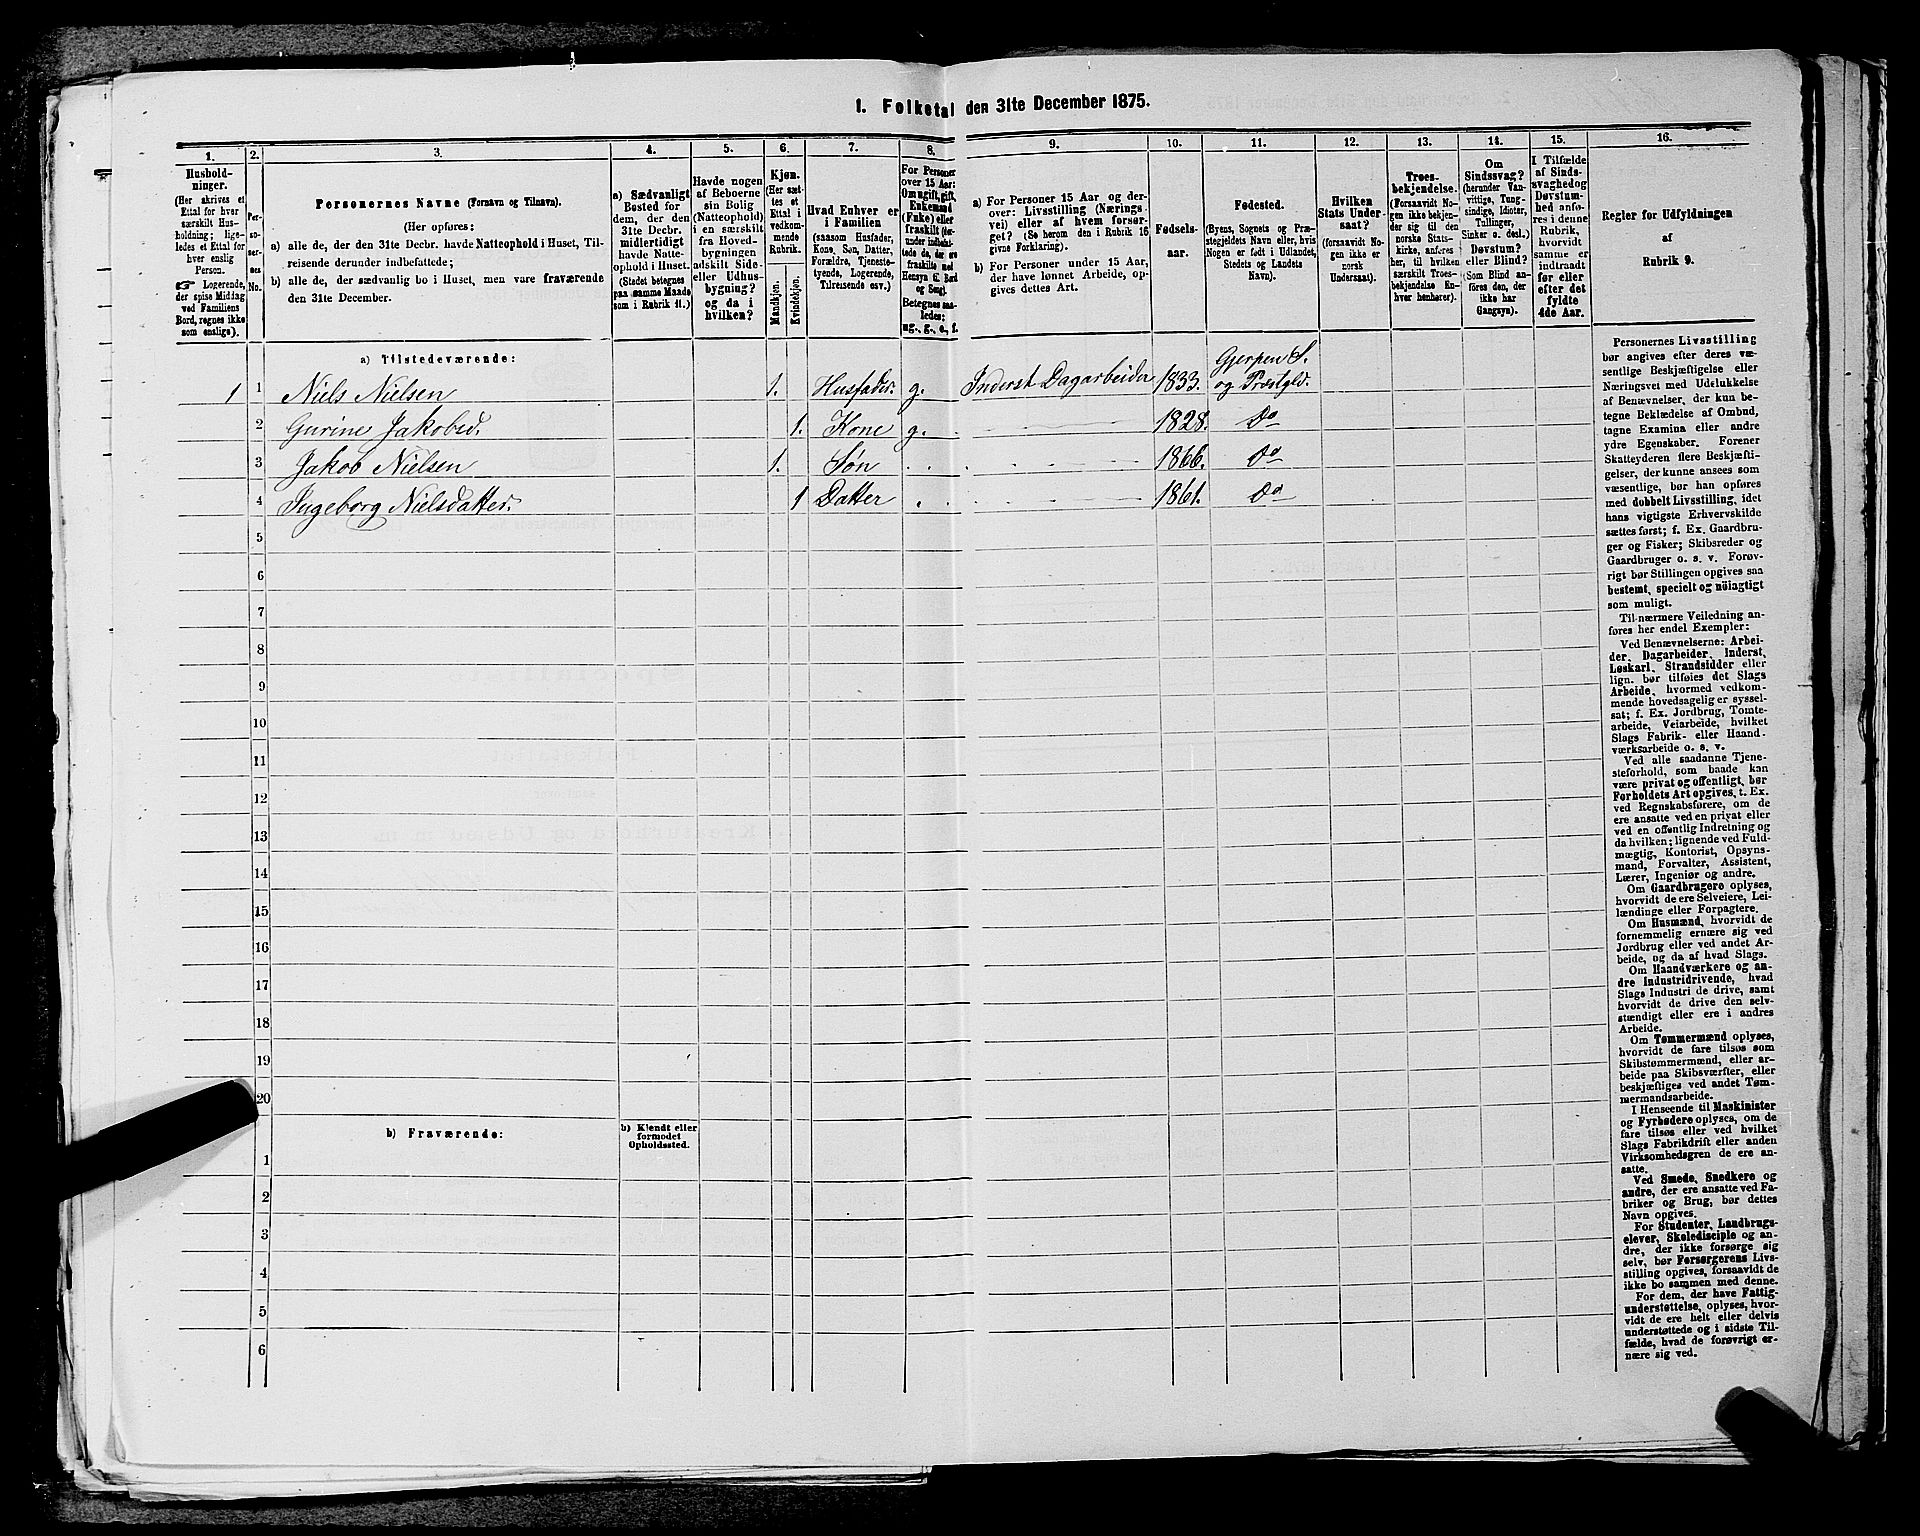 1. Folketal den 31te December 1875.
1.
2.
3.
4.
5.
6.
7.
8.
9.
10.
11.
12.
13.
14.
15.
16.
Husholdninger.
(Her skrives et
Ettal for hver
særskilt Husholdning; ligeledes et Ettal for
hver enslig
Person.
☛ Logerende,
der spise Middag
ved Familiens
Bord, regnes ikke
som enslige).
Personernes No.
Personernes Navne (Fornavn og Tilnavn).
(Her opføres:
a) alle de, der den 31te Decbr. havde Natteophold i Huset, Tilreisende derunder indbefattede;
b) alle de, der sædvanlig bo i Huset, men vare fraværende
den 31te December.
a) Sædvanligt
Bosted for
dem, der den
31te Decbr.
midlertidigt
havde Natteophold i Huset.
(Stedet betegnes
paa samme Maade
som i Rubrik 11.)
Havde nogen
af Beboerne
sin Bolig
(Natteophold)
i en særskilt
fra Hovedbygningen
adskilt Side- eller Udhusbygning?
og da i
hvilken?
Kjøn.
(Her sættes et
Ettal i
vedkommende
Rubrik.
Mandkjøn.
Kvindekjøn.
Hvad Enhver er
i Familien
(saasom Husfader,
Kone, Søn, Datter,
Forældre, Tjenestetyende, Logerende,
Tilreisende osv.)
For Personer
over 15 Aar:
Om ugift, gift,
Enkemand
(Enke) eller
fraskilt
Betegnes saaledes:
ug., g., e., f.
a) For Personer 15 Aar og derover: Livsstilling (Næringsvei) eller af hvem forsørget? (Se herom den i Rubrik 16
givne Forklaring).
b) For Personer under 15 Aar,
der have lønnet Arbeide, opgives dettes Art.
Fødselsaar.
Fødested.
(Byens, Sognets og Præstegjeldets Navn eller, hvis
Nogen er født i Udlandet,
Stedets og Landets
Navn).
Hvilken
Stats Undersaat?
(forsaavidt Nogen ikke er
norsk
Undersaat).
Troesbekjendelse.
(Forsaavidt Nogen ikke bekjender sig til den
norske Statskirke, anføres her, til hvilken
særskilt Troesbekjendelse Enhver henhører).
Om
Sindssvag?
(herunder Vanvittige, Tungsindige, Idioter,
Tullinger,
Sinker o. desl.)
Døvstum?
eller Blind?
(Som Blind anføres den, der
ikke har
Gangsyn).
I Tilfælde
af Sindssvaghed og
Døvstumhed anføres i denne
Rubrik,
hvorvidt
samme er
indtraadt
før eller
efter det
fyldte
4de Aar.
Regler for Udfyldningen
af
Rubrik 9.
a) Tilstedeværende:
1 1 Niels Nielsen 1. Husfader. g. Inderst Dagarbeider 1833. Gjerpen S. og Præstgld.
2 Gurine Jakobsd. 1. Kone g. 1828. Do
3 Jakob Nielsen 1. Søn 1866. Do
4 Ingeborg Nielsdatter. 1 Datter 1861. Do
5
6
7
8
9
10
11
12
13
14
15
16
17
18
19
20
b) Fraværende:
b) Kjendt eller
formodet
Opholdssted.
1
2
3
4
5
6
Personernes Livsstilling
bør angives efter deres væsentlige Beskjæftigelse eller
Næringsvei med Udelukkelse
af Benævnelser, der kun betegne Beklædelse af Ombud,
tagne Examina eller andre
ydre Egenskaber. Forener
Skatteyderen flere Beskjæftigelser, der kunne ansees som
væsentlige, bør han opføres
med dobbelt Livsstilling, idet
hans vigtigste Erhvervskilde
sættes først; f. Ex. Gaardbruger og Fisker; Skibsreder og
Gaardbruger o. s. v. Forøvrigt bør Stillingen opgives saa
bestemt, specielt og nöiagtigt
som muligt.
Til nærmere Veiledning anføres her endel Exempler:
Ved Benævnelserne: Arbeider, Dagarbeider, Inderst,
Løskarl, Strandsidder eller
lign. bør tilføies det Slags
Arbeide, hvormed vedkommende hovedsagelig er sysselsat; f. Ex. Jordbrug, Tomtearbeide, Veiarbeide, hvilket
Slags Fabrik- eller Haandværksarbeide o. s. v.
Ved alle saadanne Tjenesteforhold, som baade kan
være privat og offentligt, bør
Forholdets Art opgives, t. Ex.
ved Regnskabsførere, om de
ere ansatte ved en privat eller
ved en offentlig Indretning og
da hvilken; lignende ved Fuldmægtig, Kontorist, Opsynsmand, Forvalter, Assistent,
Lærer, Ingeniør og andre.
Om Gaardbrugere oplyses,
hvorvidt de ere Selveiere, Leilændinge eller Forpagtere.
Om Husmænd, hvorvidt de
fornemmelig ernære sig ved
Jordbrug eller ved andet Arbeide, og da af hvad Slags.
Om Haandværkere og andre Industridrivende, hvad
Slags Industri de drive, samt
hvorvidt de drive den selvstændigt eller ere i andres
Arbeide.
Om Tømmermænd oplyses,
hvorvidt de fare tilsøs som
Skibstømmermænd, eller arbeide paa Skibsværfter, eller
beskjæftiges ved andet Tømmermandsarbeide.
I Henseende til Maskinister
og Fyrbødere oplyses, om de
fare tilsøs eller ved hvilket
Slags Fabrikdrift eller anden
Virksomhedsgren de ere ansatte.
Ved Smede, Snedkere og
andre, der ere ansatte ved Fabriker og Brug, bør dettes
Navn opgives.
For Studenter, Landbrugselever, Skoledisciple og andre, der ikke forsørge sig
selv, bør Forsørgerens Livsstilling opgives, forsaavidt de
ikke bo sammen med denne.
For dem, der have Fattigunderstøttelse, oplyses, hvorvidt de ere helt eller delvis
understøttede og i sidste Tilfælde, hvad de forøvrigt ernære sig ved.